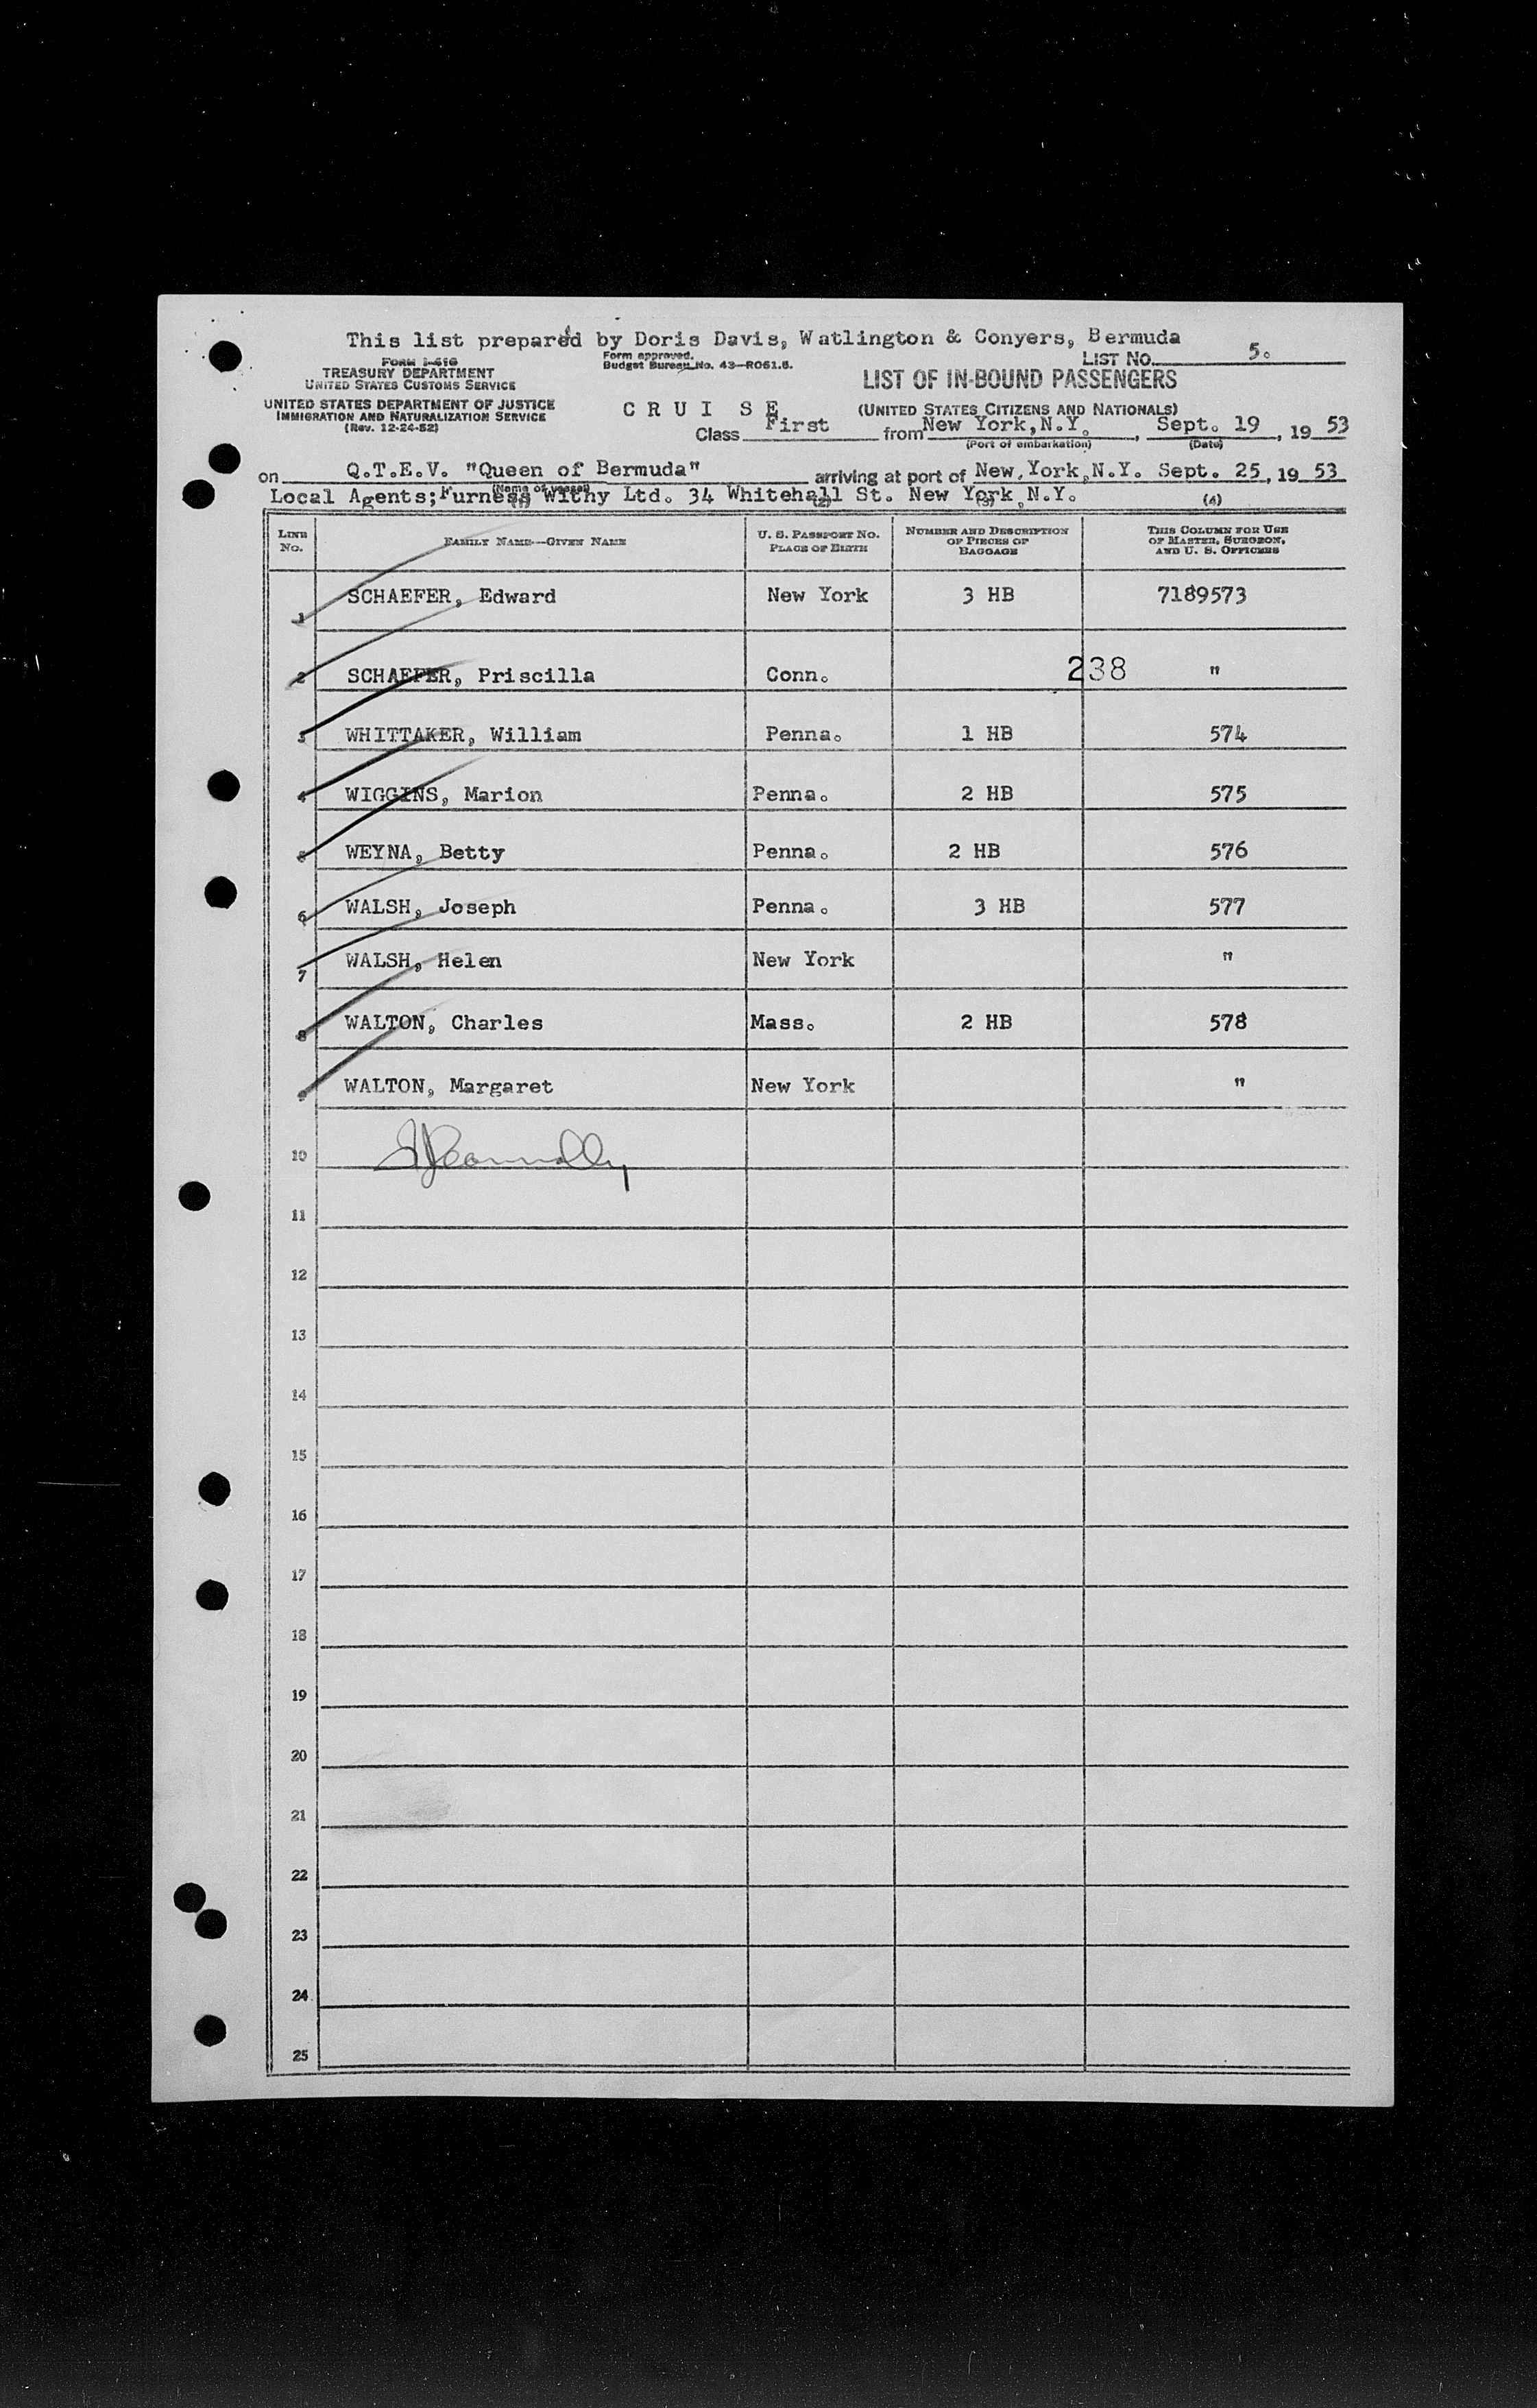 This list prepared by Doris Davis, Watlington & Conyers, Bermuda
FORM I-416
TREASURY DEPARTMENT
UNITED STATES CUSTOMS SERVICE
UNITED STATES DEPARTMENT OF JUSTICE
IMMIGRATION AND NATURALIZATION SERVICE
(Rev. 12-24-52)
Form approved.
Budget Bureau No. 43—R061.5.
LIST NO. 5.
LIST OF IN-BOUND PASSENGERS
(UNITED STATES CITIZENS AND NATIONALS)
C R U I S E
Class First from New York, N.Y. , Sept. 19 , 19 53
(Port of embarkation) (Date)
on Q.T.E.V. "Queen of Bermuda" arriving at port of New York, N.Y. Sept. 25, 19 53
(Name of vessel)
Local Agents; Furness Withy Ltd. 34 Whitehall St. New York, N.Y.
(1) (2) (3) (4)
LINE NO. FAMILY NAME—GIVEN NAME U. S. PASSPORT NO. PLACE OF BIRTH NUMBER AND DESCRIPTION OF PIECES OF BAGGAGE THIS COLUMN FOR USE OF MASTER, SURGEON, AND U. S. OFFICERS
1 SCHAEFER, Edward New York 3 HB 7189573
2 SCHAEFER, Priscilla Conn. 238 "
3 WHITTAKER, William Penna. 1 HB 574
4 WIGGINS, Marion Penna. 2 HB 575
5 WEYNA, Betty Penna. 2 HB 576
6 WALSH, Joseph Penna. 3 HB 577
7 WALSH, Helen New York "
8 WALTON, Charles Mass. 2 HB 578
9 WALTON, Margaret New York "
10
11
12
13
14
15
16
17
18
19
20
21
22
23
24
25